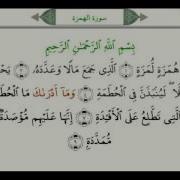 سورة الهمزة
بِسْمِ ٱللَّهِ ٱلرَّحْمَـٰنِ ٱلرَّحِيمِ
هُمَزَةٍ لُّمَزَةٍ ١ ٱلَّذِى جَمَعَ مَالًا وَعَدَّدَهُۥ ٢ يَحْ
لَّا ۖ لَيُنۢبَذَنَّ فِى ٱلْحُطَمَةِ ٤ وَمَآ أَدْرَىٰكَ مَا
ٱلَّتِى تَطَّلِعُ عَلَى ٱلْأَفْـِٔدَةِ ٧ إِنَّهَا عَلَيْهِم مُّؤْصَدَةٌ
مُّمَدَّدَةٍۭ ٩